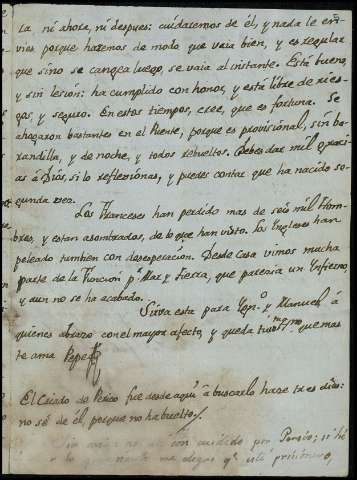 ta ni ahora, ni despues: cuidaremos de él, y nada le en
vies porque haremos de modo que vaia bien, y es regular
que sino se cangea luego, se vaia al instante. Está bueno,
y sin lesión: ha cumplido con honor, y está libre de ries-
gos, y seguro. En estos tiempos, cree, que es fortuna. Se
ahogaron bastantes en el Puente, porque es provisional, sin ba-
randilla, y de noche, y todos rebueltos. Debes dar mil graci-
as á Dios, si lo reflexionas, y puedes contar que ha nacido se-
gunda vez.
Los Franceses han perdido mas de seis mil Hom-
bres, y estan asombrados, de lo que han visto. Los Yngleses han
peleado tambien con desesperacion. Desde casa vimos mucha
parte de la Funcion pr Mar y Tierra, que parecia un Ynfierno,
y aun no se ha acabado.
Sirva esta para y Manuel á
quienes abrazo con el mayor afecto, y queda tuio que mas
te ama Pepe
El Criado de Perico fue desde aqui á buscarlo hace tres dias:
no sé de él, porque no ha buelto
con cuidado por Perico; si hé
me alegro qe esté prisionero,